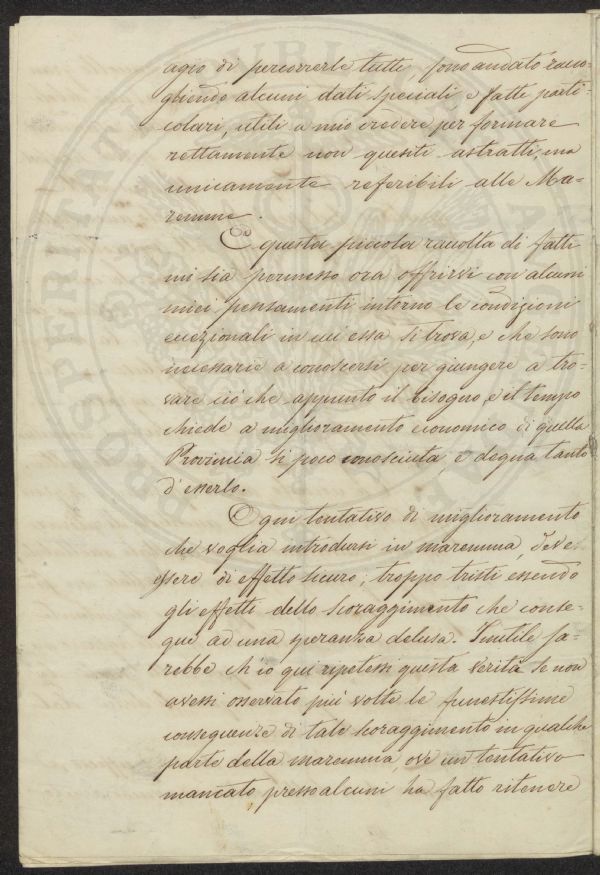 agio di percorrerle tutte, sono andato racco-
gliendo alcuni dati speciali e fatti parti-
colari, utili a mio credere per formare
rettamente non quesiti astratti, ma
unicamente referibili alle Ma-
remme.
E questa piccola raccolta di fatti
mi sia permesso ora offrirvi con alcuni
miei pensamenti intorno le condizioni
eccezionali in cui essa si trova, e che sono
necessarie a conoscersi per giungere a tro-
vare ciò che appunto il bisogno, e il tempo
chiede a miglioramento economico di quella
Provincia sì poco conosciuta e degna tanto
d'esserlo.
Ogni tentativo di miglioramento
che voglia introdursi in maremma, deve
essere di effetto sicuro; troppo tristi essendo
gli effetti dello scoraggimento che conse-
gue ad una speranza delusa. Inutile sa-
rebbe ch'io qui ripetessi questa verità se non
avessi osservato più volte le funestissime
conseguenze di tale scoraggimento in qualche
parte della maremma, ove un tentativo
mancato presso alcuni ha fatto ritenere
PROSPERITATI PUBLICAE AU